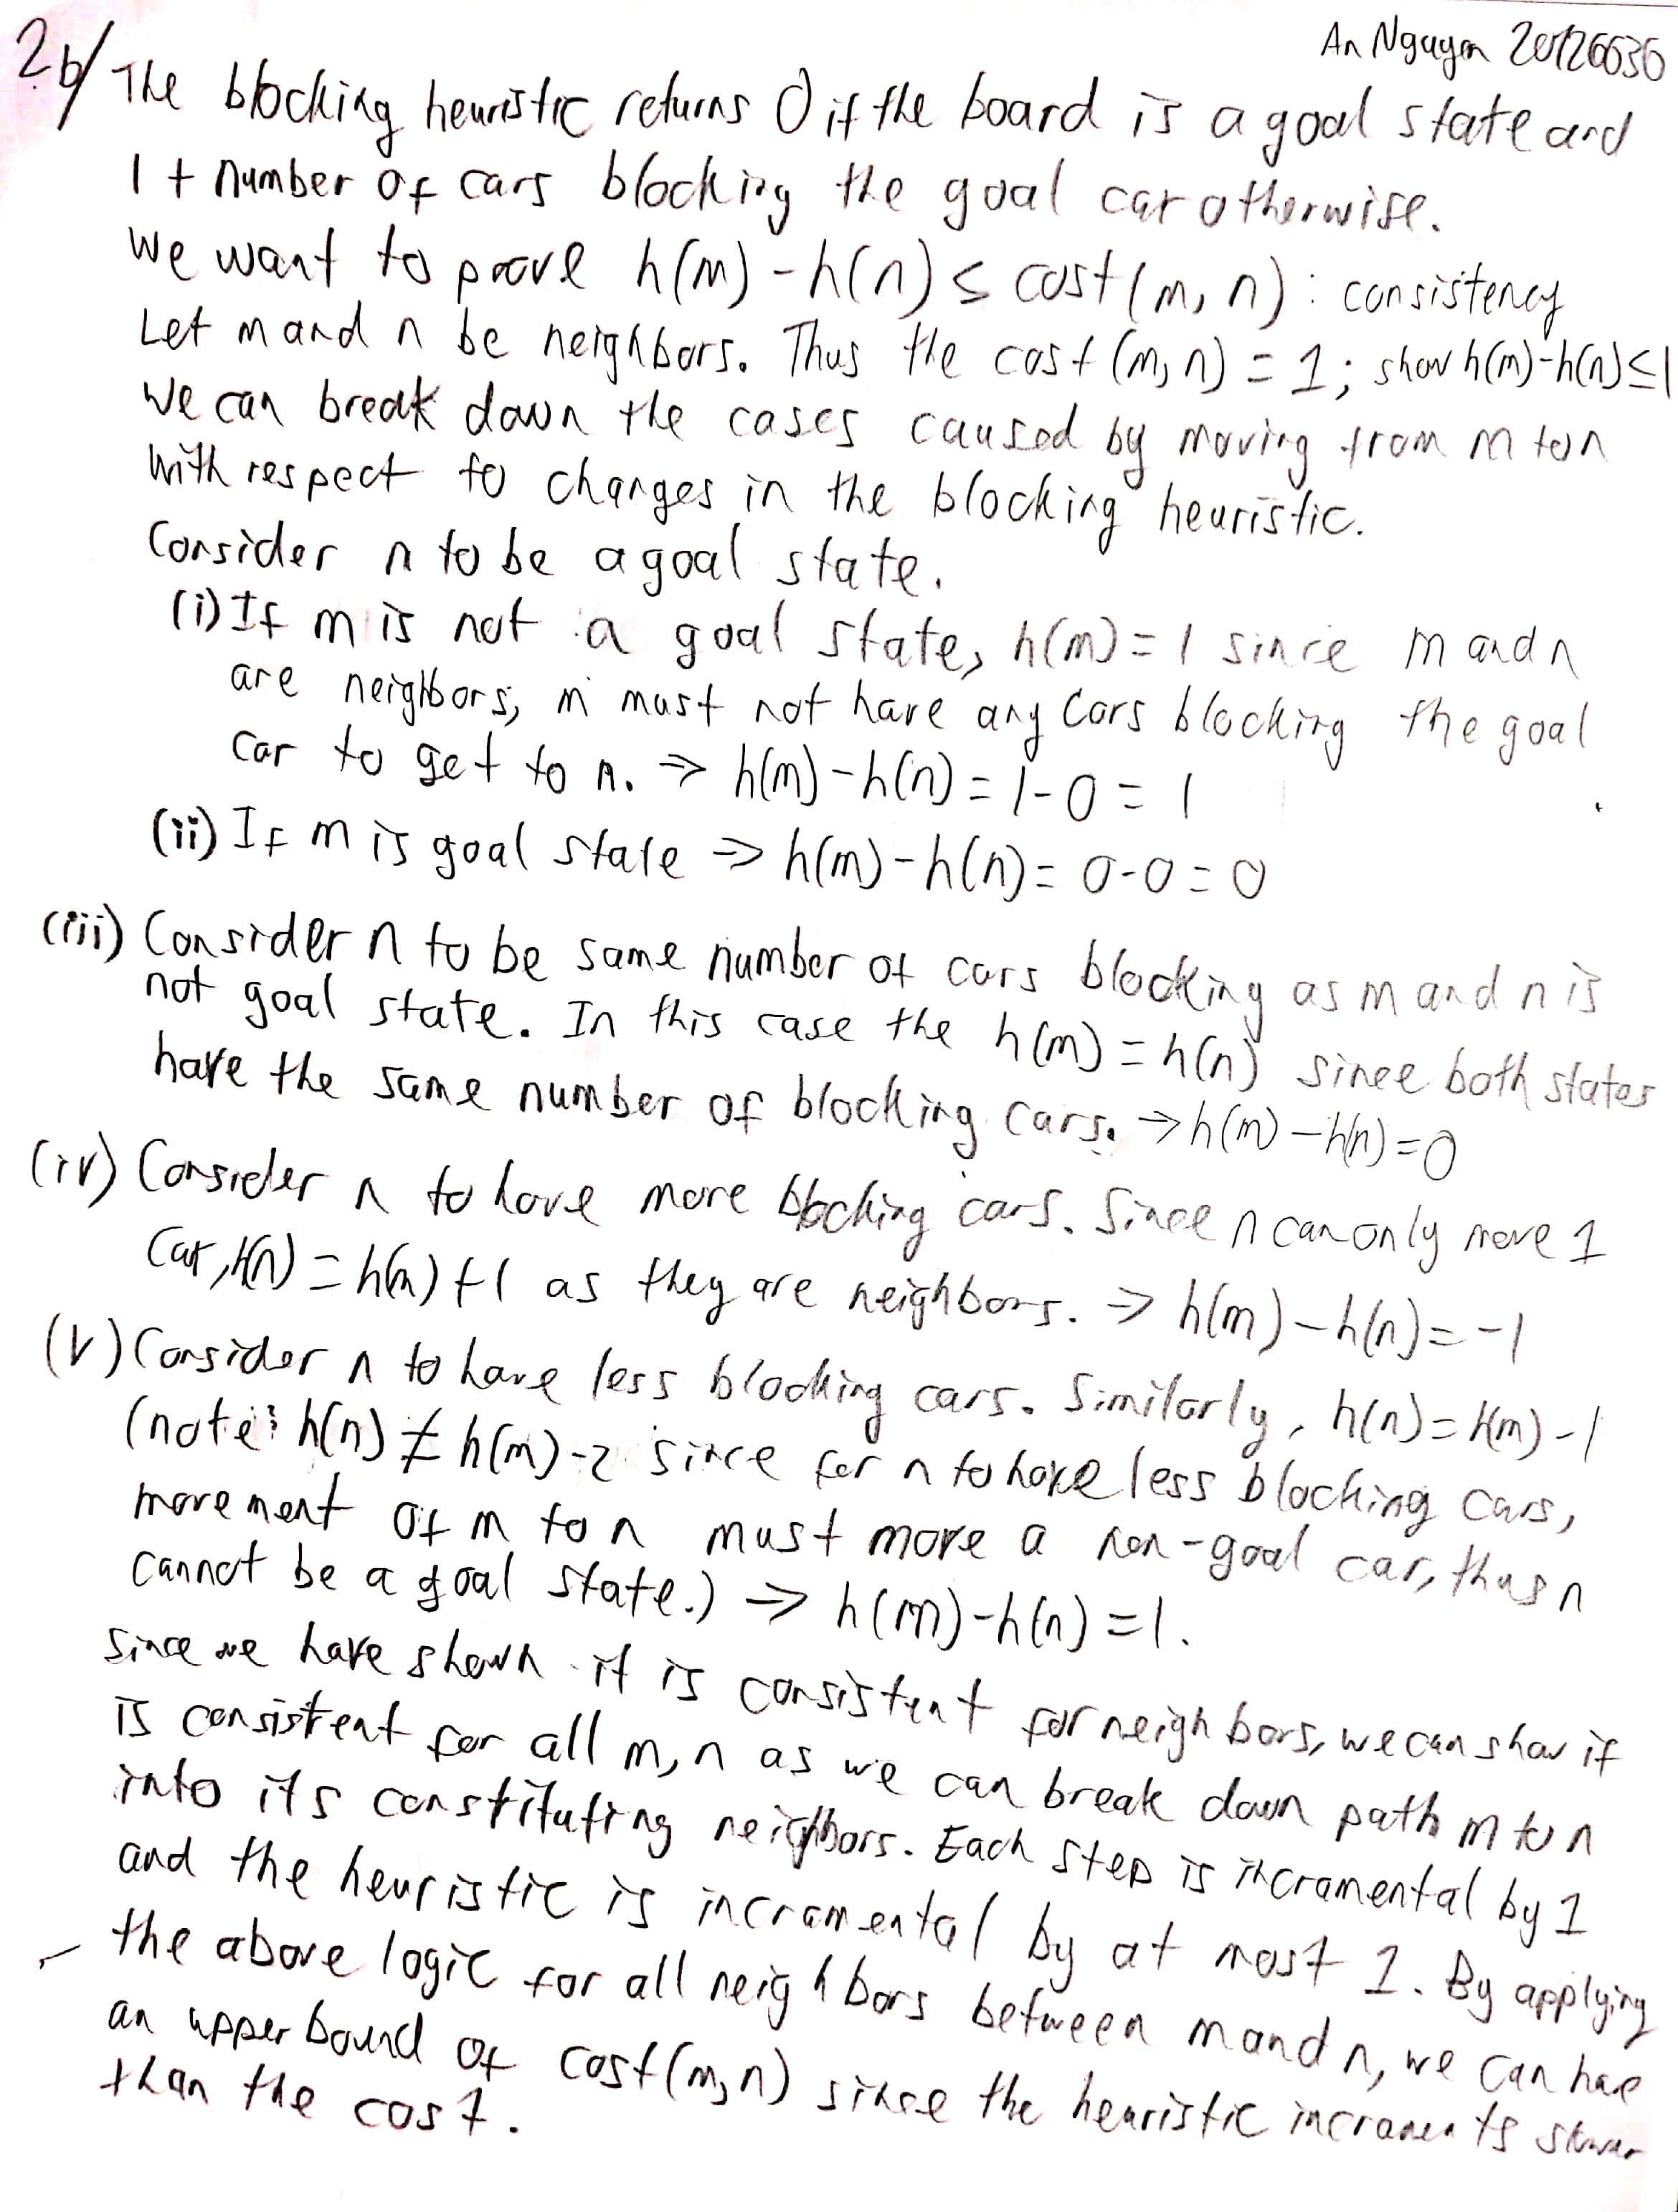 An Nguyen 20126636
2.b/ The blocking heuristic returns 0 if the board is a goal state and
1 + number of cars blocking the goal car otherwise.
We want to prove h(m) - h(n) ≤ cost(m, n) : consistency
Let m and n be neighbors. Thus the cost (m, n) = 1; show h(m)-h(n) ≤ 1
We can break down the cases caused by moving from m to n
with respect to changes in the blocking heuristic.
Consider n to be a goal state.
(i) If m is not a goal state, h(m) = 1 since m and n
are neighbors, m must not have any cars blocking the goal
car to get to n. ⇒ h(m) - h(n) = 1 - 0 = 1
(ii) If m is goal state ⇒ h(m) - h(n) = 0 - 0 = 0
(iii) Consider n to be same number of cars blocking as m and n is
not goal state. In this case the h(m) = h(n) since both states
have the same number of blocking cars. → h(m) - h(n) = 0
(iv) Consider n to have more blocking cars. Since n can only move 1
car, h(n) = h(m) + 1 as they are neighbors. ⇒ h(m) - h(n) = -1
(v) Consider n to have less blocking cars. Similarly, h(n) = h(m) - 1
(note: h(n) ≠ h(m) - 2 since for n to have less blocking cars,
movement of m to n must move a non-goal car, thus n
cannot be a goal state.) → h(m) - h(n) = 1.
Since we have shown it is consistent for neighbors, we can show it
is consistent for all m, n as we can break down path m to n
into its constituting neighbors. Each step is incramental by 1
and the heuristic is incramental by at most 1. By applying
the above logic for all neighbors between m and n, we can have
an upper bound of cost(m, n) since the heuristic incraments slower
than the cost.